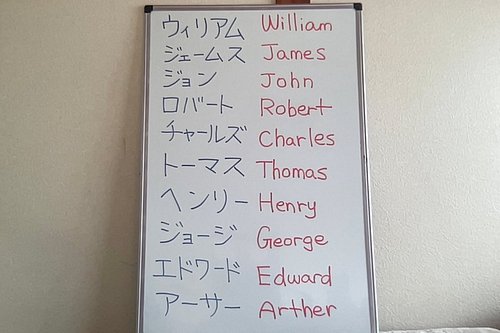 ウィリアム William
ジェームス James
ジョン John
ロバート Robert
チャールズ Charles
トーマス Thomas
ヘンリー Henry
ジョージ George
エドワード Edward
アーサー Arther